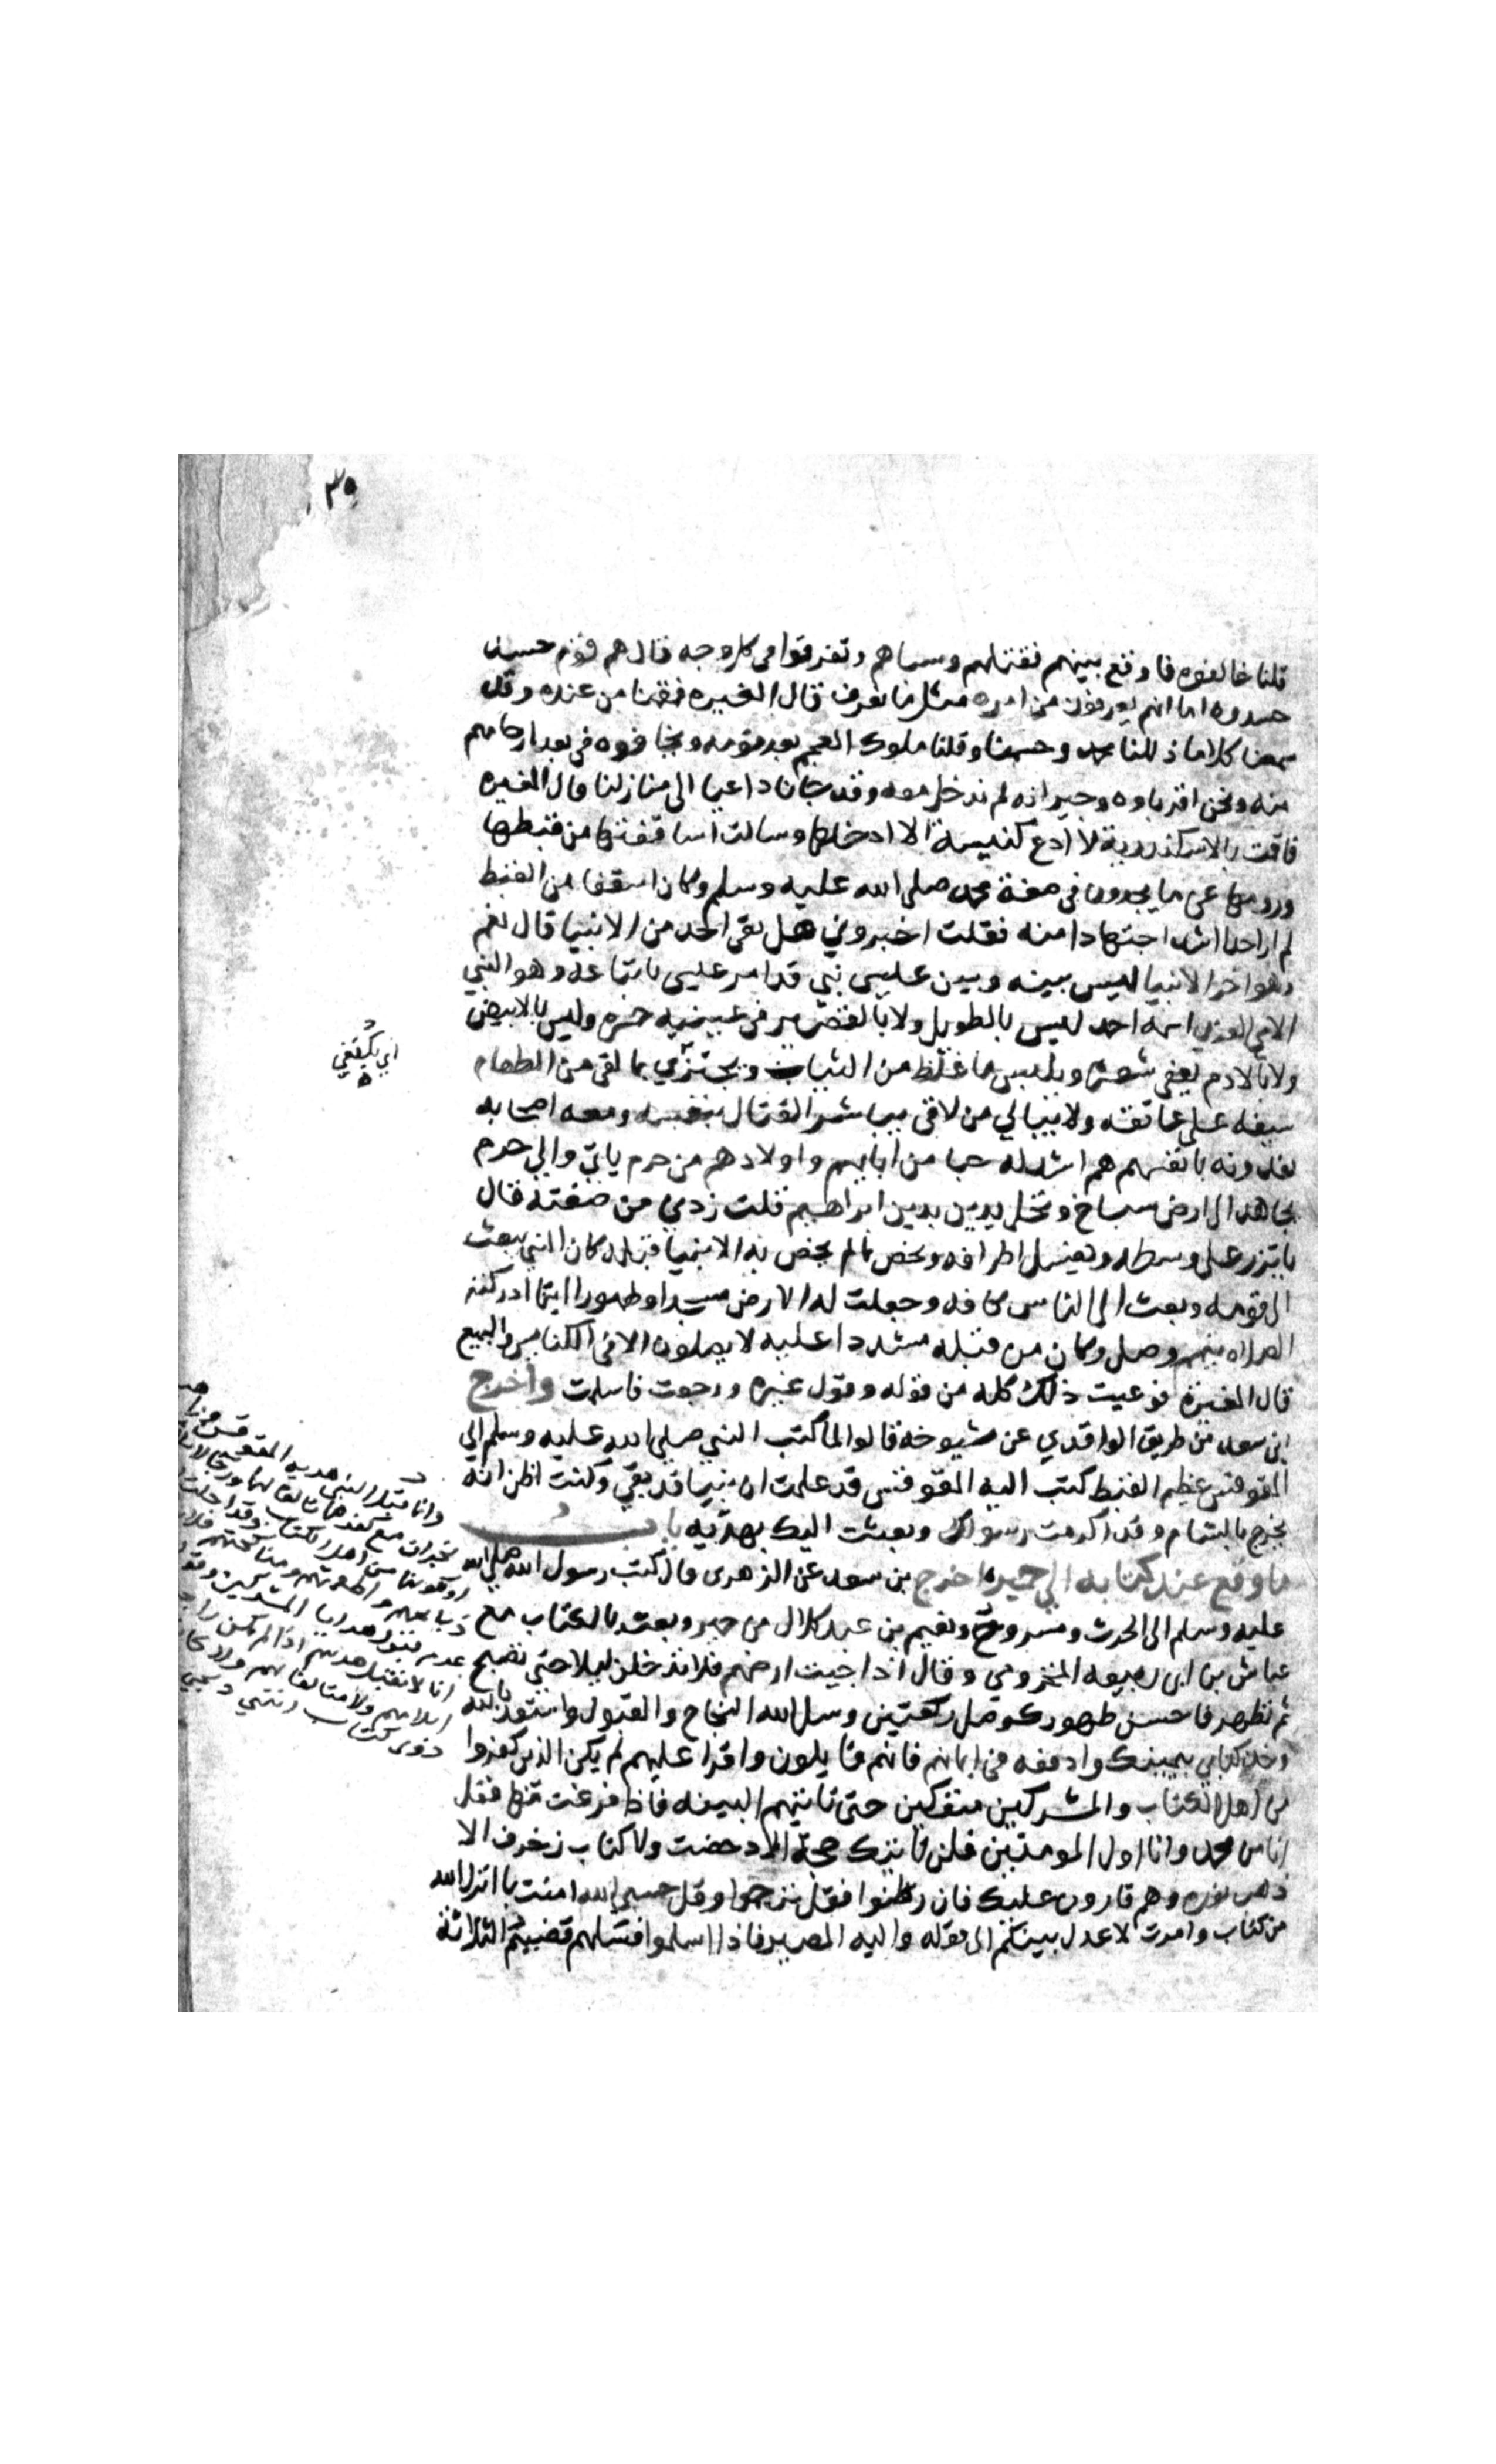 ٣٥
قلنا خالفوه فاوقع بينهم فقتلهم وسباهم وتفرقوا في كل وجه قال هم قوم حسد
حسدوه اما انهم يعرفون من امره مثل ما نعرف قال المغيره فقمنا من عنده وقد
سمعنا كلاما ذللنا لمحمد وخضعنا وقلنا ملوك العجم يصدقونه ويخافونه في بعد ارحامهم
منه ونحن اقرباوه وجيرانه لم ندخل معه وقد جانا داعيا الى منازلنا قال المغيره
فاقمت بالاسكندرية لا ادع كنيسة الا دخلتها وسالت اساقفتها من قبطها
ورومها عن ما يجدون في صفة محمد صلى الله عليه وسلم وكان اسقفا من القبط
لم ار احدا اشد اجتهادا منه فقلت اخبروني هل بقي احد من الانبيا قال نعم
وهو اخر الانبيا ليس بينه وبين عيسى نبي قد امر عيسى باتباعه وهو النبي
الامي العربي اسمه احمد ليس بالطويل ولا بالقصير في عينيه حمره وليس بالابيض
ولا بالادم يعفي شعره ويلبس ما غلظ من الثياب ويجتزي بما لقى من الطعام
اي يكتفي
سيفه على عاتقه ولا يبالي من لاقى يباشر القتال بنفسه ومعه اصحابه
يفدونه بانفسهم هم اشد له حبا من ابايهم واولادهم من حرم ياتي والى حرم
يهاجر الى ارض سباخ ونخل يدين بدين ابراهيم قلت زدني من صفته قال
ياتزر على وسطه ويغسل اطرافه ويخص بما لم يخص به الانبيا قبله كان النبي يبعث
الى قومه وبعث الى الناس كافه وجعلت له الارض مسجدا وطهورا اينما ادركته
الصلاه تيمم وصلى وكان من قبله مشددا عليه لا يصلون الا في الكنايس والبيع
قال المغيره فوعيت ذلك كله من قوله وقول غيره ورجعت فاسلمت واخرج
ابن سعد من طريق الواقدي عن شيوخه قالوا لما كتب النبي صلى الله عليه وسلم الى
المقوقس عظيم القبط كتب اليه المقوقس قد علمت ان نبيا قد بقي وكنت اظن انه
يخرج بالشام وقد اكرمت رسولك وبعثت اليك بهديه باب
ما وقع عند كتابه الى حمير اخرج بن سعد عن الزهرى قال كتب رسول الله صلى الله
عليه وسلم الى الحرث ومسروح ونعيم بن عبد كلال من حمير وبعث بالكتاب مع
عياش بن ابى ربيعه المخزومي وقال اذا جيت ارضهم فلا تدخلن ليلا حتى تصبح
ثم تطهر فاحسن طهورك وصل ركعتين وسل الله النجاح والقبول واستعذ بالله
وخذ كتابي بيمينك وادفعه في ايمانهم فانهم قابلون واقرا عليهم لم يكن الذين كفروا
من اهل الكتاب والمشركين منفكين حتى تاتيهم البينه فاذا فرغت منها فقل
امن محمد وانا اول المومنين فلن تاتيك حجة الا دحضت ولا كتاب زخرف الا
ذهب نوره وهم قارون عليك فان رطنوا فقل ترجموا وقل حسبي الله امنت بما انزل الله
من كتاب وامرت لاعدل بينكم الى قوله واليه المصير فاذا اسلموا فسلهم قضبهم الثلاثة
وانما قبل النبي هديه المقوقس
مع كفرهما
من اهل الكتاب وقد احلت
المشركين
انا لا نقبل هديتهم اذا لم يكن
ذوى كتاب انتهى